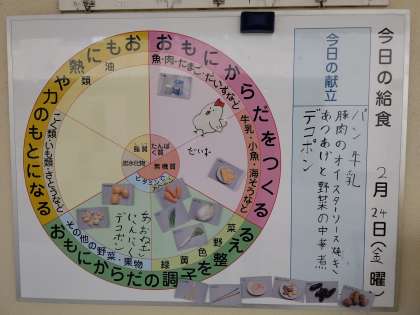 今日の給食
2月24日(金曜)
今日の献立
パン 牛乳
豚肉のオイスターソース焼き
あつあげと野菜の中華煮
デコポン
おもにからだをつくる
魚・肉・たまご・だいずなど
牛乳・小魚・海そうなど
だいず
おもにからだの調子を整える
緑黄色野菜
その他の野菜・果物
あおねぎ
にんにく
デコポン
おもに熱や力のもとになる
こく類・いも類・さとうなど
油類
脂質
たんぱく質
炭水化物
無機質
ビタミン